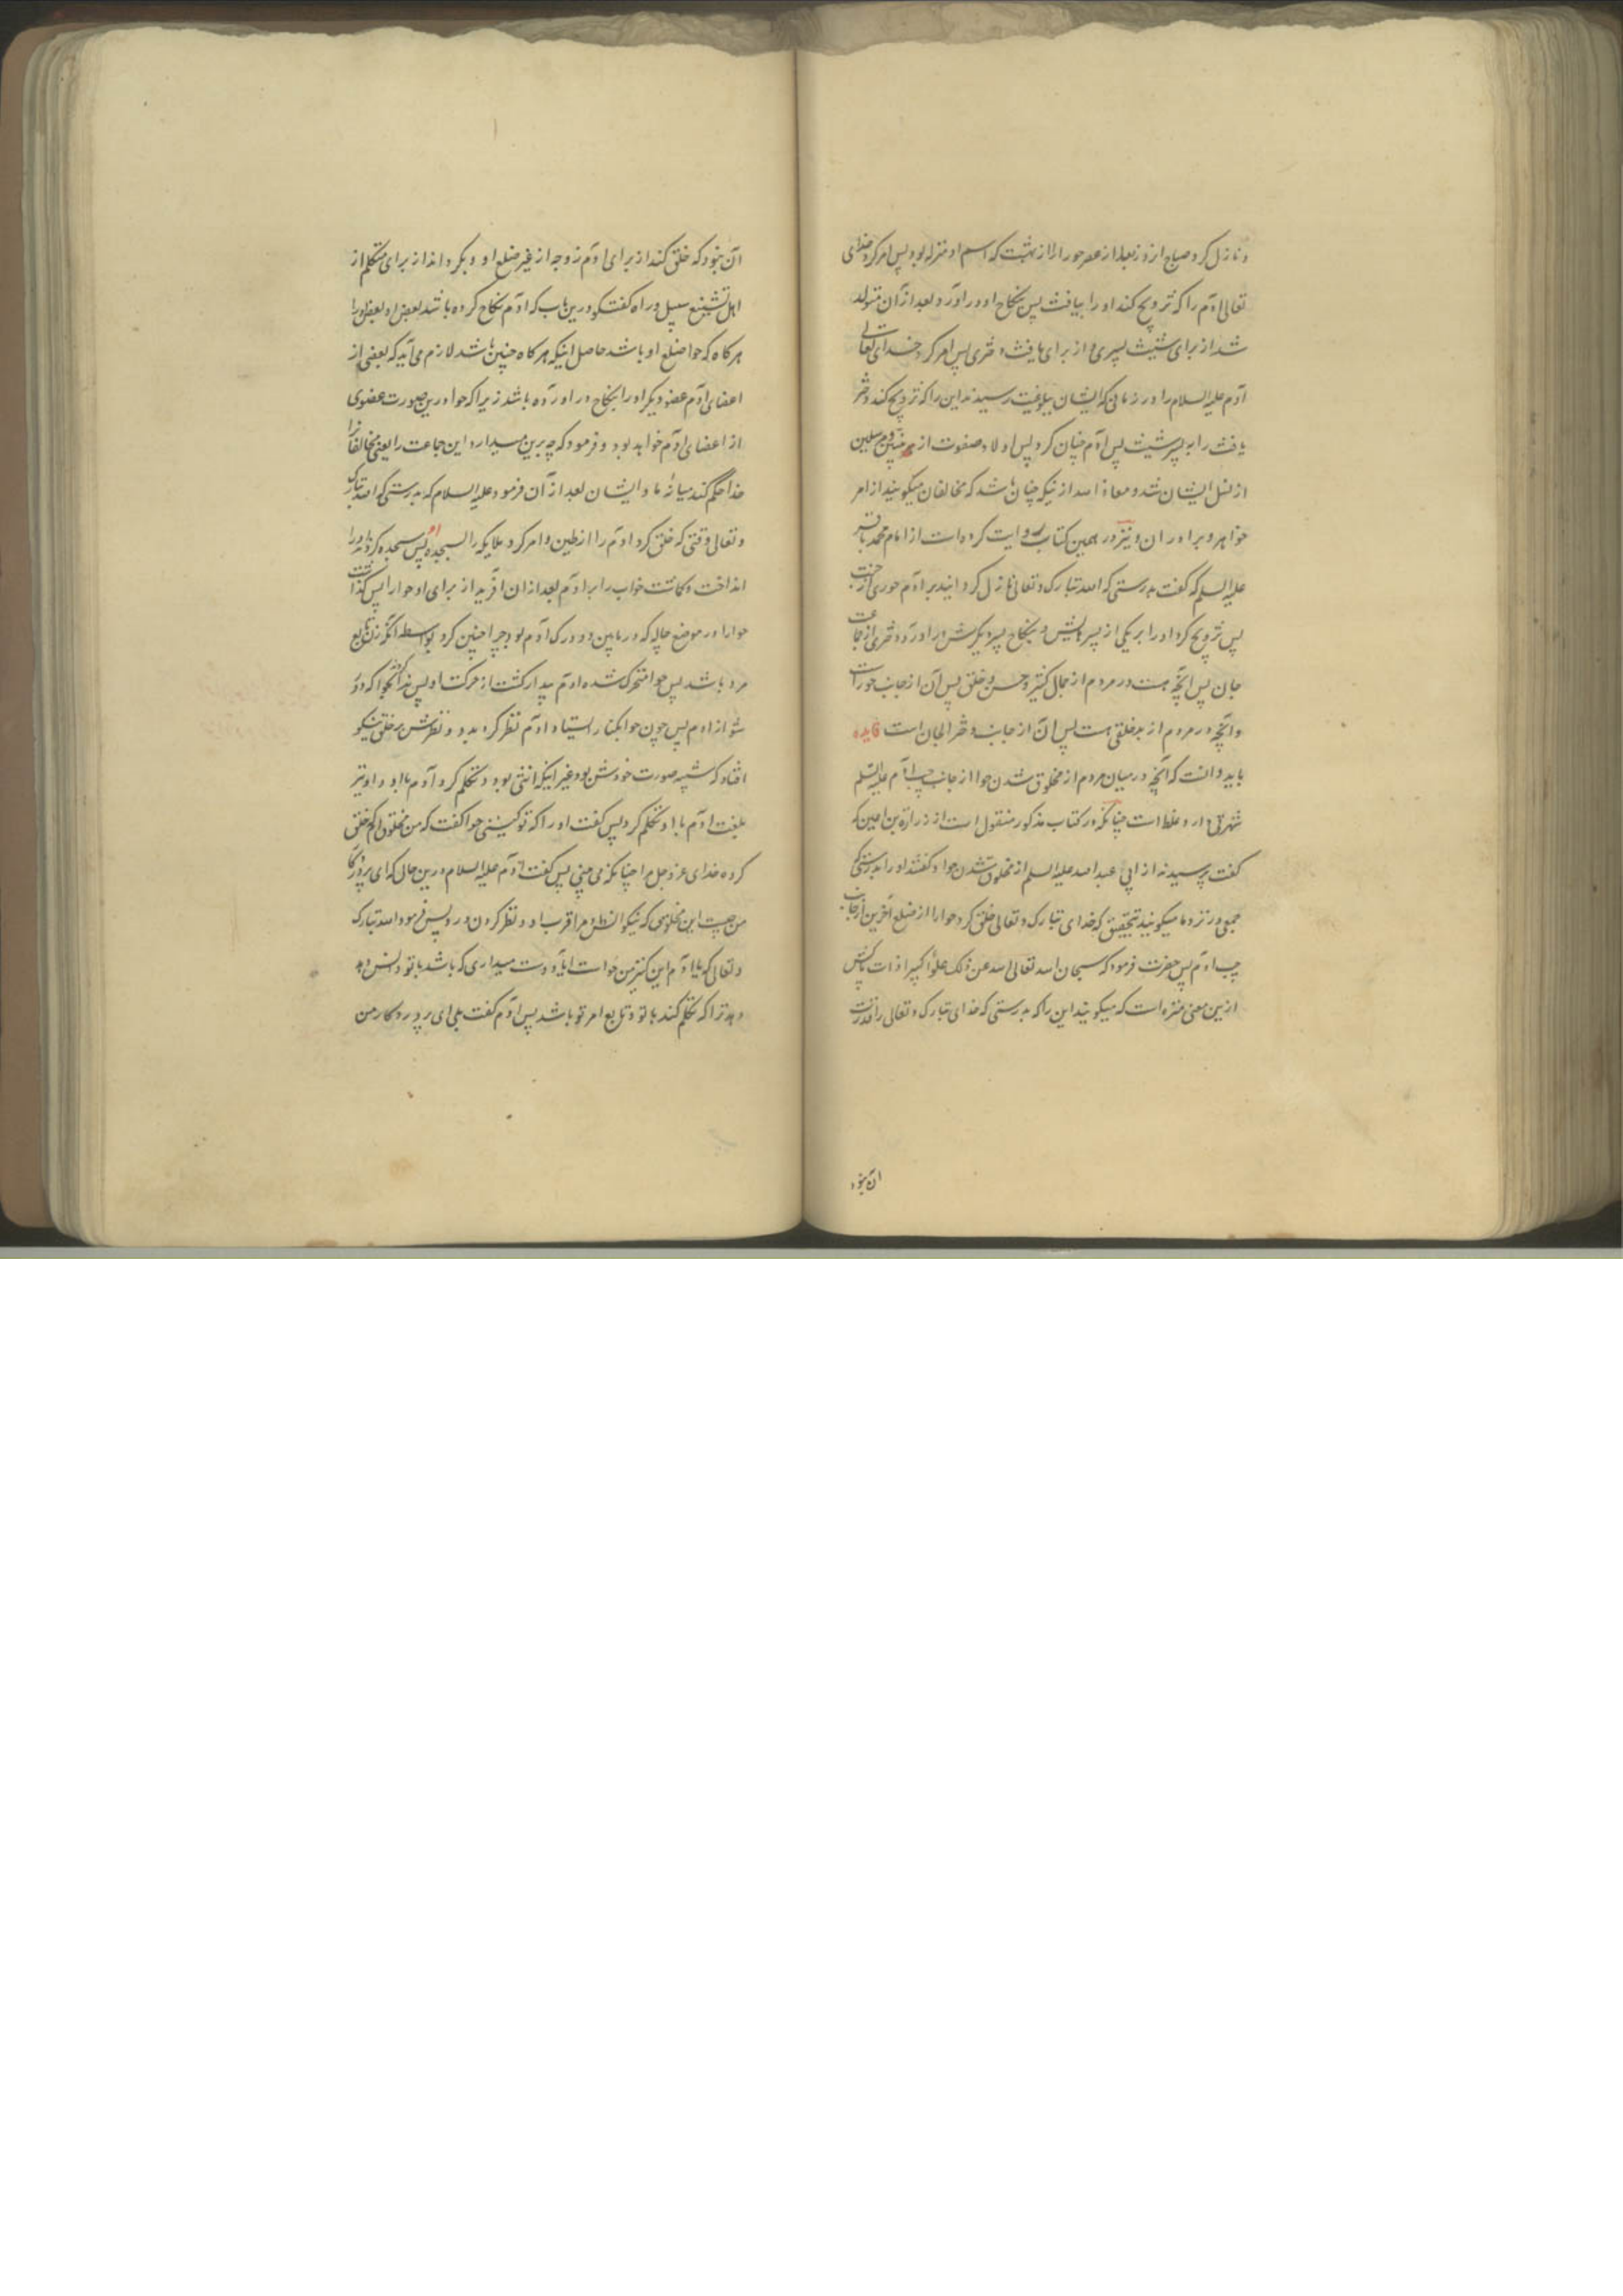 و نازل کرد صباح از روز بعد از عصر حورا را از بهشت که اسم او منزله بود پس امر کرد خدای
تعالی آدم را که تزویج کند او را بیافث پس بنکاح او در آورد و بعد از آن متولد
شد از برای شیث پسری و از برای یافث دختری پس امر کرد خدای تعالی
آدم علیه السلام را در زمانی که ایشان ببلوغیت رسیدند این را که تزویج کند دختر
یافث را به پسر شیث پس آدم چنان کرد پس اولاد صفوت از نبیین و مرسلین
از نسل ایشان شد و معاذ الله از نیکه چنان باشد که مخالفان میکویند از امر
خواهر و برادران و نیز در همین کتاب روایت کرده است از امام محمد باقر
علیه السلم که کفت بدرستی که الله تبارک و تعالی نازل کردانید بر آدم حوری از جنت
پس تزویج کرد او را بر یکی از پسرهایش و بنکاح پسر دیکرش در آورد دختری از جماعت
جان پس آنچه هست در مردم از جمال کثیر و حسن خلق پس آن از جانب حوراست
و آنچه در مردم از بدخلقی هست پس آن از جانب دختر الجان است فایده
باید دانست که آنچه در میان مردم از مخلوق شدن حوا از جانب چپ آدم علیه السلم
شهرتی دارد غلط است چنانکه در کتاب مذکور منقول است از زرارة بن اعین که
کفت پرسیدند از ابی عبد الله علیه السلم از مخلوق شدن حوا و کفتند او را بدرستی که
جمعی در نزد ما میکویند بتحقیق که خدای تبارک و تعالی خلق کرد حوا را از ضلع آخرین از جانب
چپ آدم پس حضرت فرمود که سبحان الله تعالی الله عن ذلک علوا کبیرا ذات پاکش
از ین معنی منزه است که میکویند این را که بدرستی که خدای تبارک و تعالی را قدرت
آن نبود
آن نبود که خلق کند از برای آدم زوجه از غیر ضلع او و بکرداند از برای متکلم از
اهل تشنیع سبیل و راه کفتکو درین باب که آدم نکاح کرده باشد بعض او بعض او را
هر کاه که حوا ضلع او باشد حاصل اینکه هر کاه چنین باشد لازم می آید که بعضی از
اعضای آدم عضو دیکر او را بنکاح در آورده باشد زیرا که حوا درین صورت عضوی
از اعضای آدم خواهد بود و فرمود که چه برین میدارد این جماعت را یعنی مخالفان را
خدا حکم کند میانهٔ ما و ایشان بعد از آن فرمود علیه السلام که بدرستی که الله تبارک
و تعالی وقتی که خلق کرد آدم را از طین و امر کرد ملایکه را بسجدهٔ او پس سجده کردند او را
انداخت و کاشت خواب را بر آدم بعد از ان آفرید از برای او حوا را پس کذاشت
حوا را در موضع چاله که در مابین دو ورک آدم بود و چرا چنین کرد بواسطه آنکه زن تابع
مرد باشد پس حوا متحرک شده آدم بیدار کشت از حرکت او پس ندا کرد حوا را که دور
شو از آدم پس چون حوا بکنار ایستاد آدم نظر کرد بدو و نظرش بر خلق نیکو
افتاد که شبیه صورت خودش بود غیر اینکه انثی بود و تکلم کرد آدم با او و او نیز
بلغت آدم با او تکلم کرد پس کفت او را که تو کیستی حوا کفت که من مخلوقی ام که خلق
کرده خدای عز و جل مرا چنانکه می بینی پس کفت آدم علیه السلام درین حال که ای پروردکار
من چیست این مخلوقی که نیکو انس داد مرا قرب او و نظر کردن در رویش فرمود الله تبارک
و تعالی که یا آدم این کنیز من حوا است ایا دوست میداری که باشد با تو و انس دهد
ترا که تکلم کند با تو و تابع امر تو باشد پس آدم کفت بلی ای پروردکار من